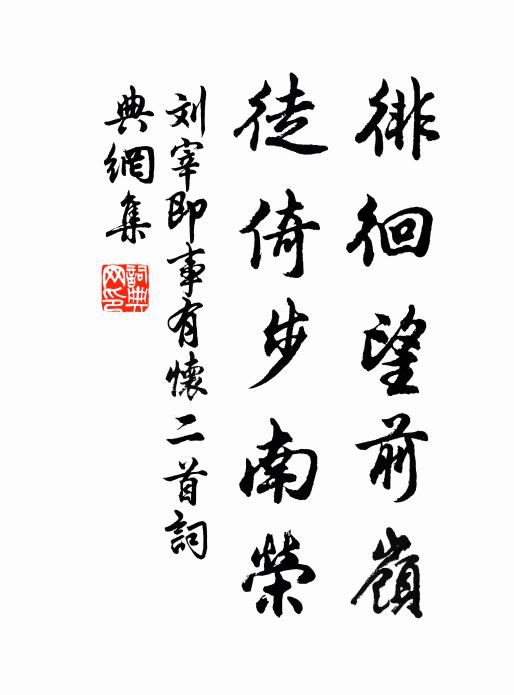 徘徊望前嶺
徒倚步南榮
刘宰即事有懷二首詞
典網集
詞典網印